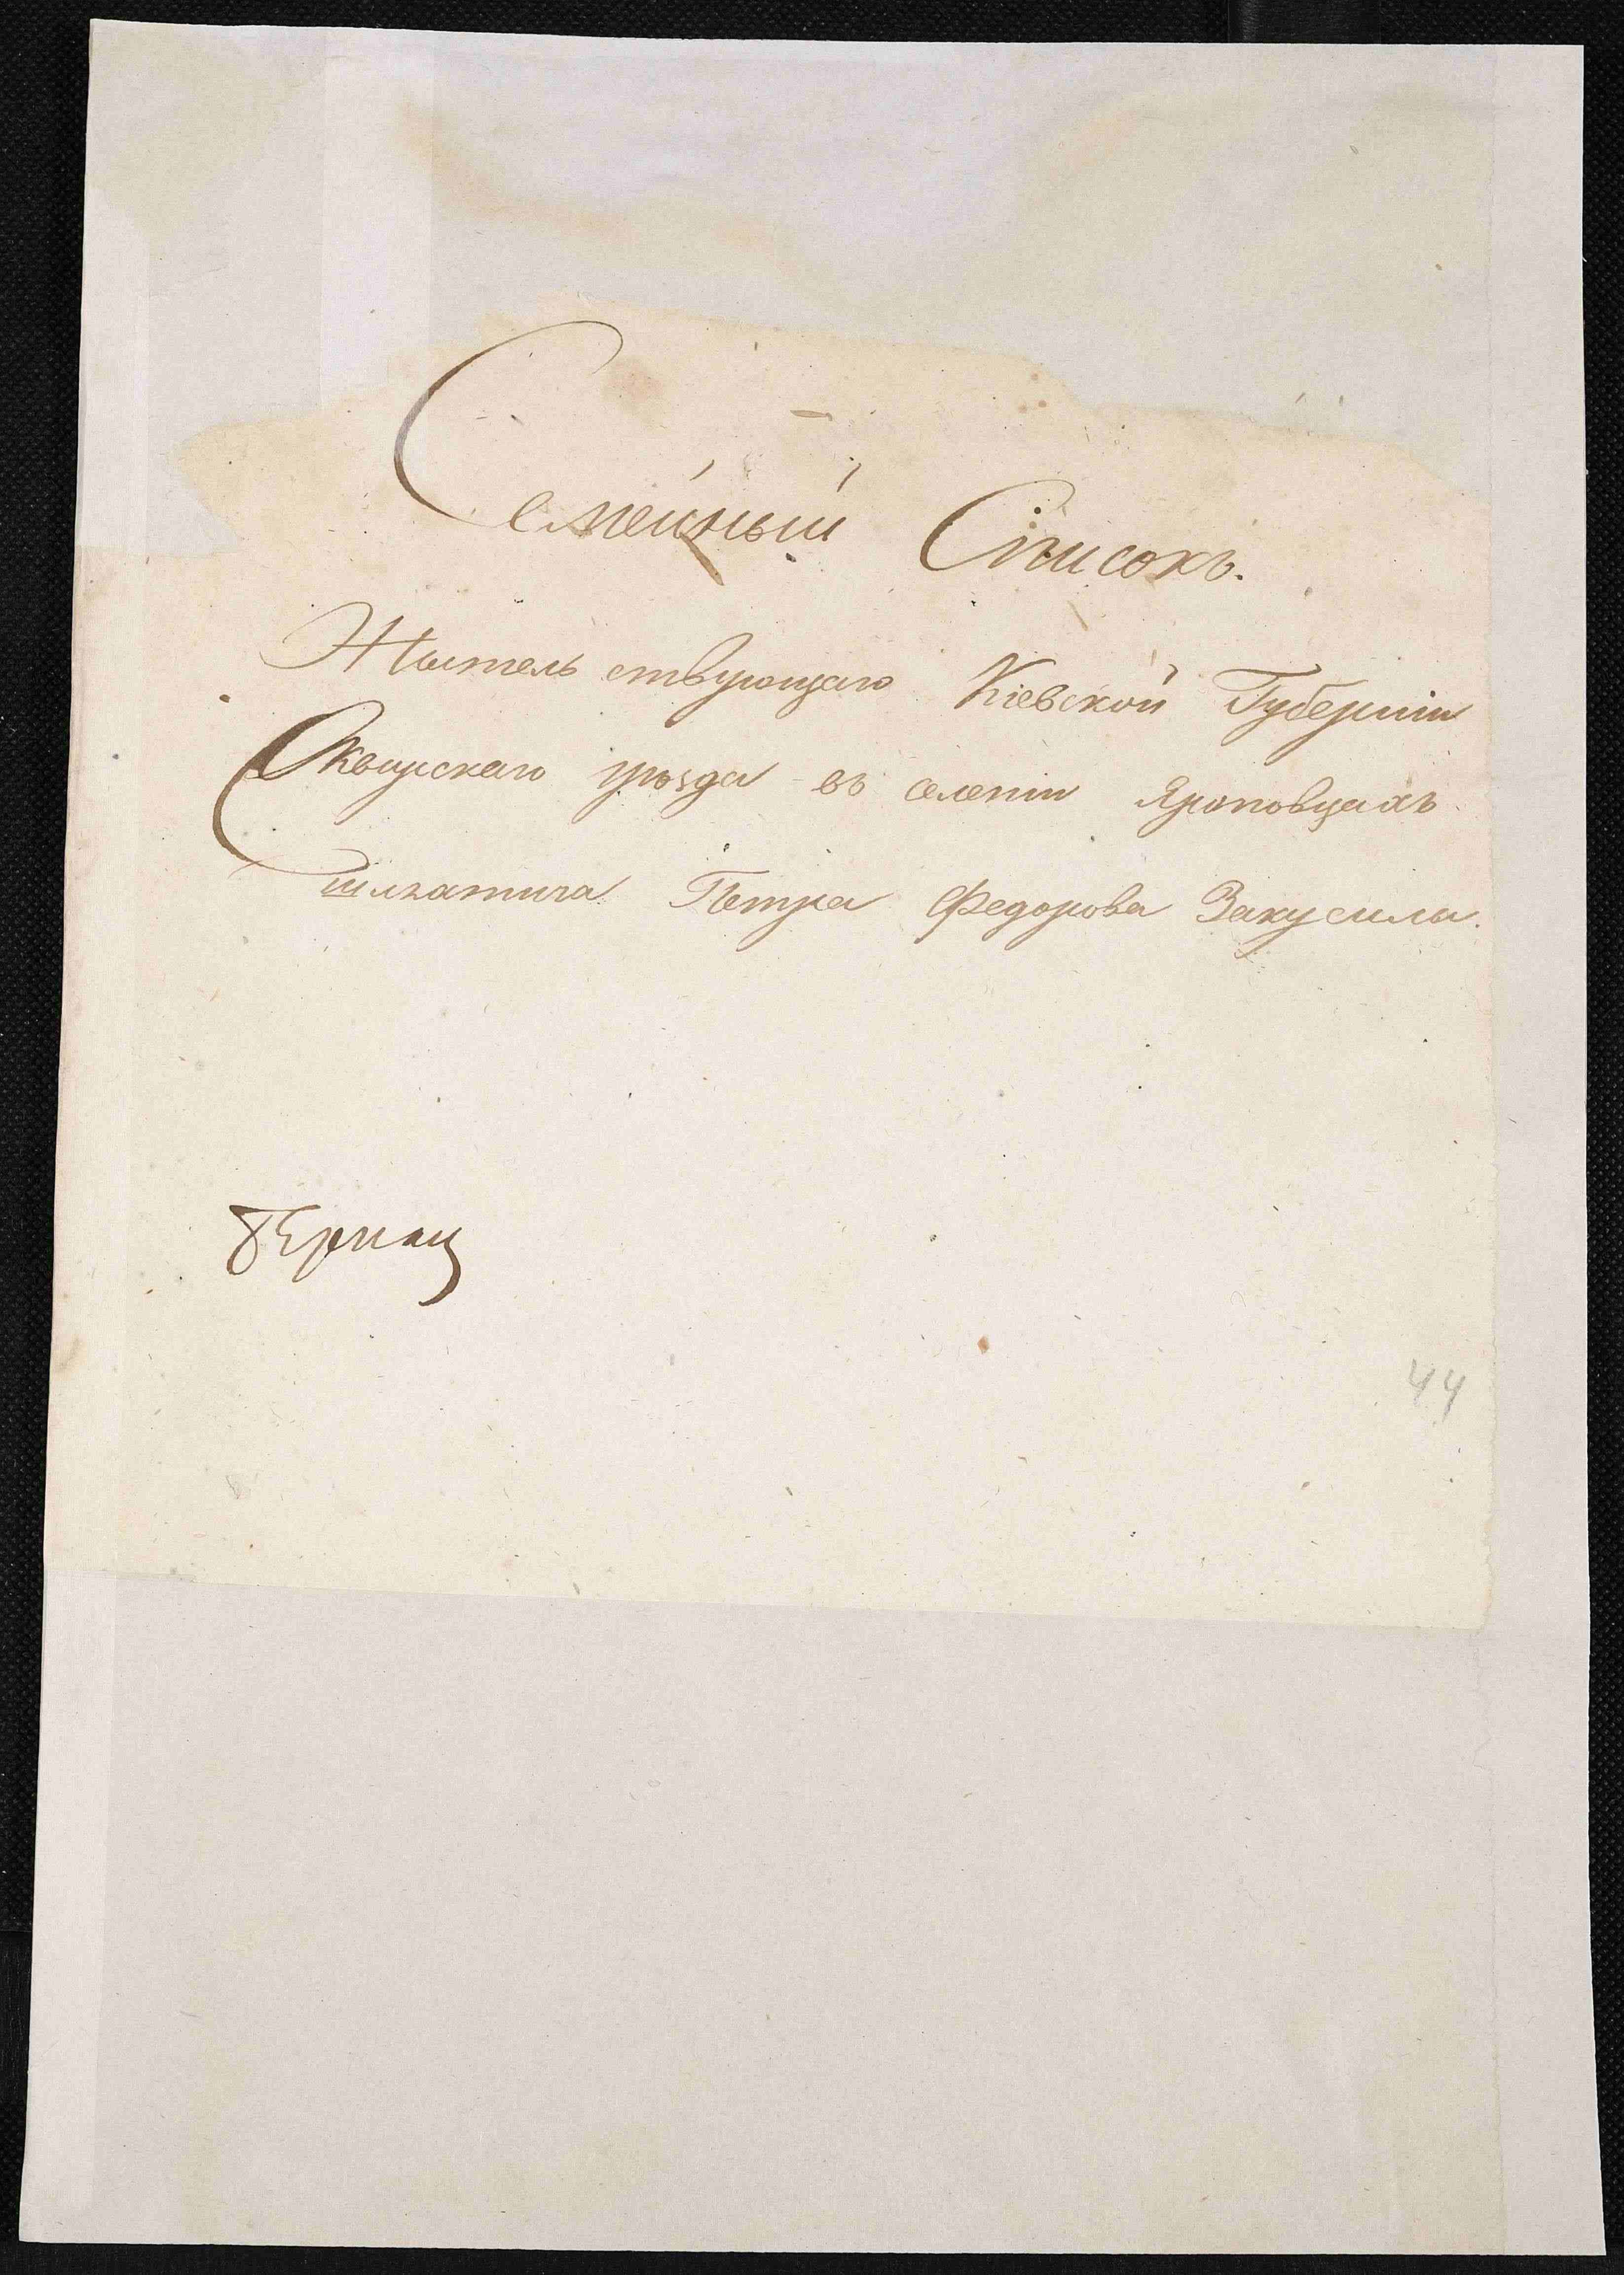 Семейный Списокъ.
Жытельствующаго Кіевской Губерніи
Сквырскаго уѣзда въ селеніи Яроповцахъ
шляхтича Петра Федорова Закусила.
44